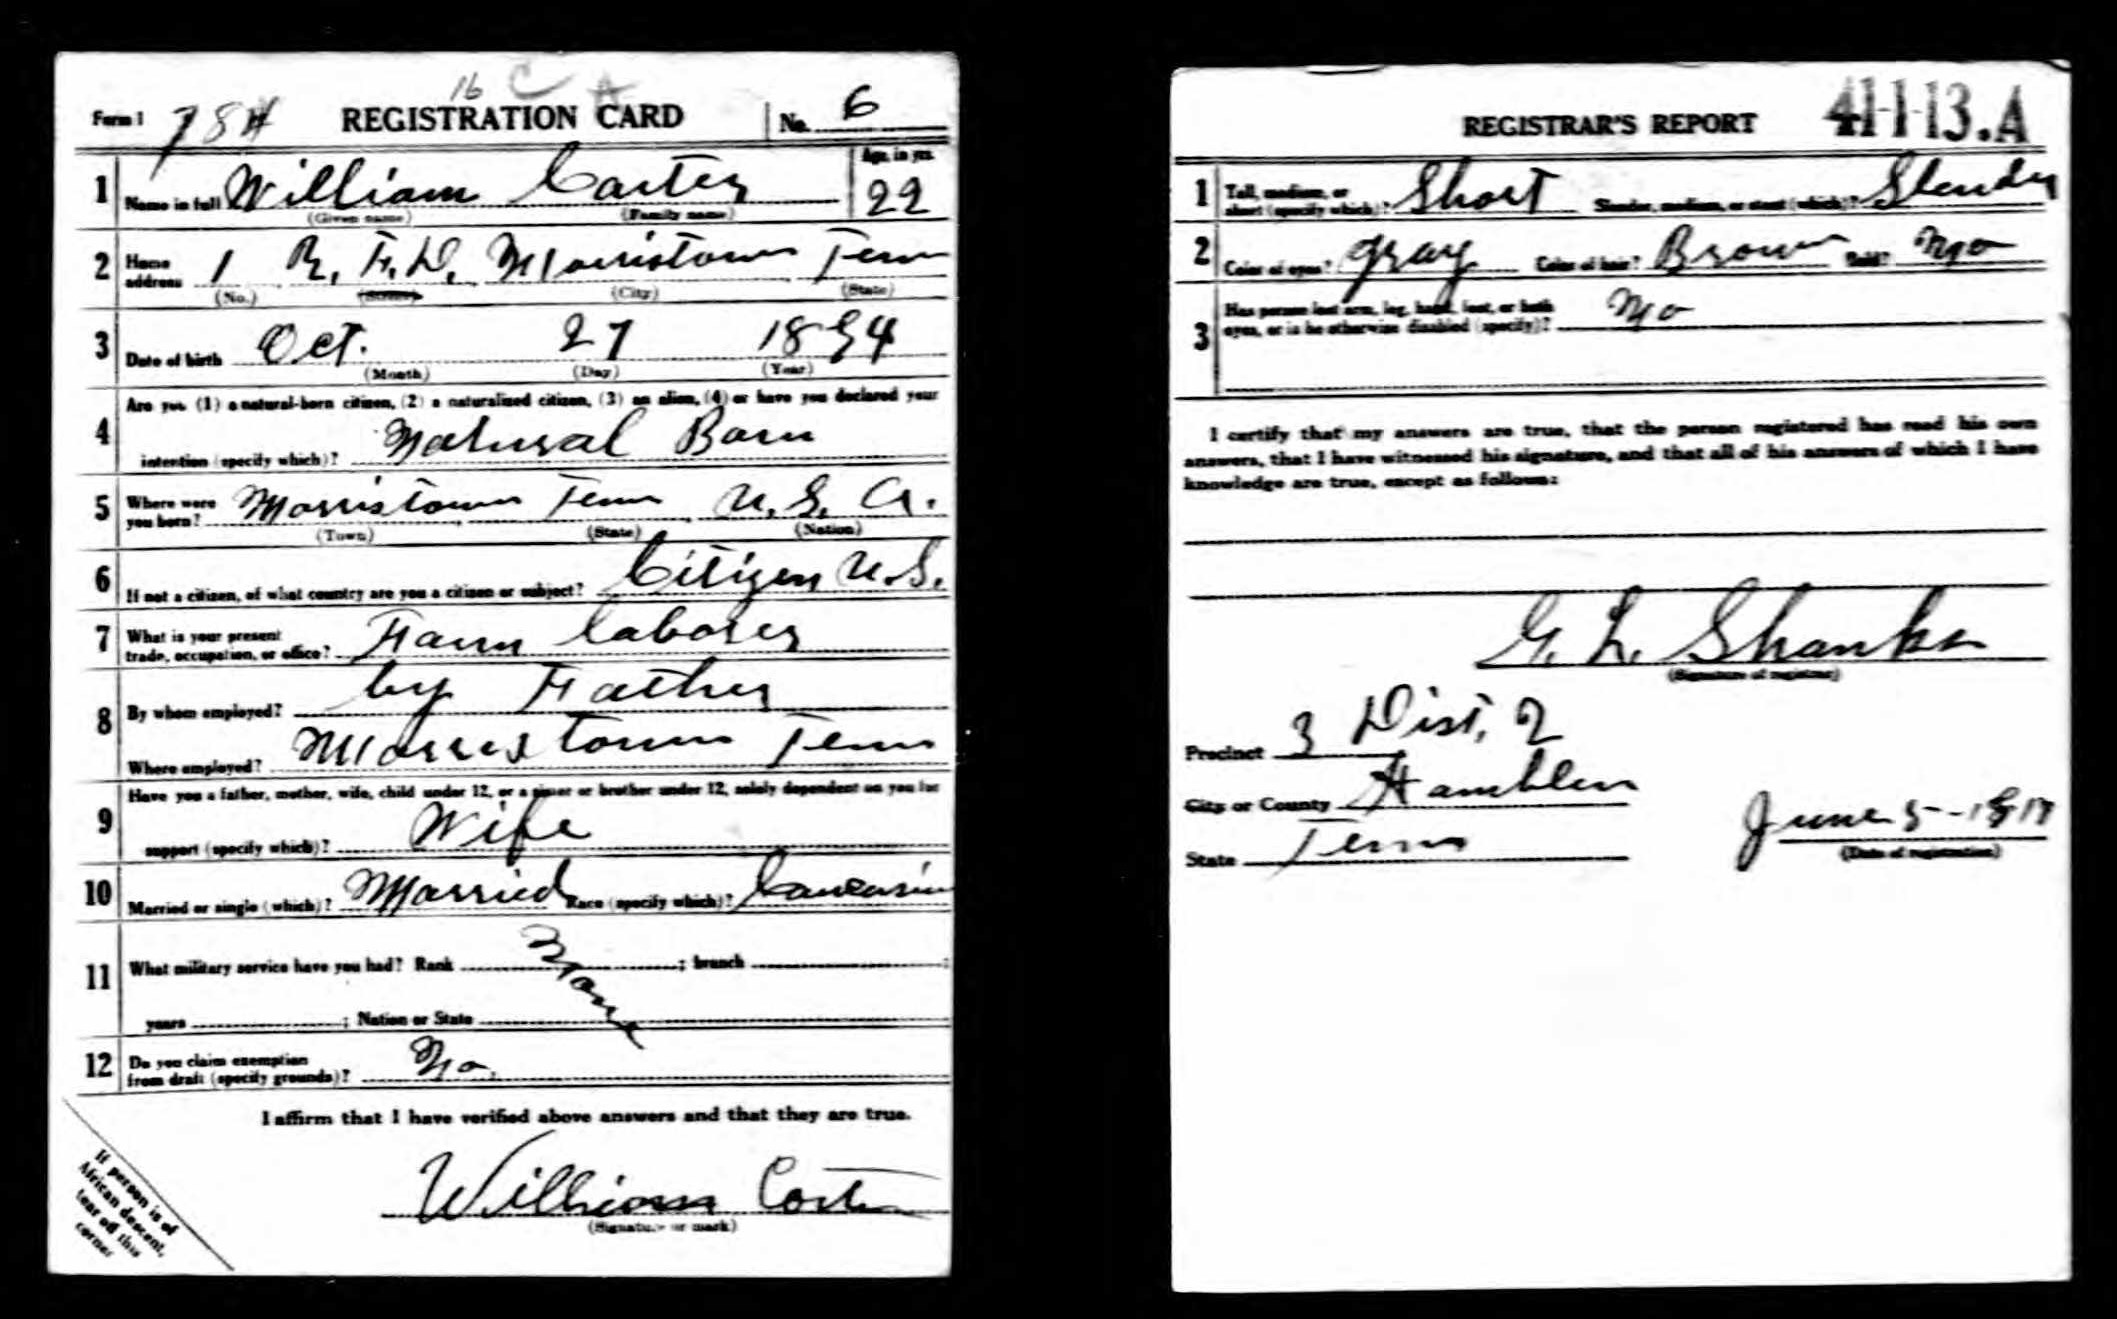 16 C A
Form 1 784 REGISTRATION CARD No. 6
1 Name in full William Carter Age, in yrs. 22
(Given name) (Family name)
2 Home address 1 R. F. D. Morristown Tenn
(No.) (Street) (City) (State)
3 Date of birth Oct. 27 1894
(Month) (Day) (Year)
4 Are you (1) a natural-born citizen, (2) a naturalized citizen, (3) an alien, (4) or have you declared your
intention (specify which)? Natural Born
5 Where were you born? Morristown Tenn U. S. A.
(Town) (State) (Nation)
6 If not a citizen, of what country are you a citizen or subject? Citizen U.S.
7 What is your present
trade, occupation, or office? Farm laborer
8 By whom employed? by Father
Where employed? Morristown Tenn
9 Have you a father, mother, wife, child under 12, or a sister or brother under 12, solely dependent on you for
support (specify which)? Wife
10 Married or single (which)? Married Race (specify which)? Caucasian
11 What military service have you had? Rank None ; branch ;
years ; Nation or State
12 Do you claim exemption
from draft (specify grounds)? No.
I affirm that I have verified above answers and that they are true.
William Carter
(Signature or mark)
If person is of
African descent,
tear off this
corner
REGISTRAR'S REPORT 41-1-13.A
1 Tall, medium, or
short (specify which)? Short Slender, medium, or stout (which)? Slender
2 Color of eyes? Gray Color of hair? Brown Bald? No
3 Has person lost arm, leg, hand, foot, or both
eyes, or is he otherwise disabled (specify)? No
I certify that my answers are true, that the person registered has read his own
answers, that I have witnessed his signature, and that all of his answers of which I have
knowledge are true, except as follows:
G. L. Shanks
(Signature of registrar)
Precinct 3 Dist. 2
City or County Hamblen
State Tenn
June 5-1917
(Date of registration)